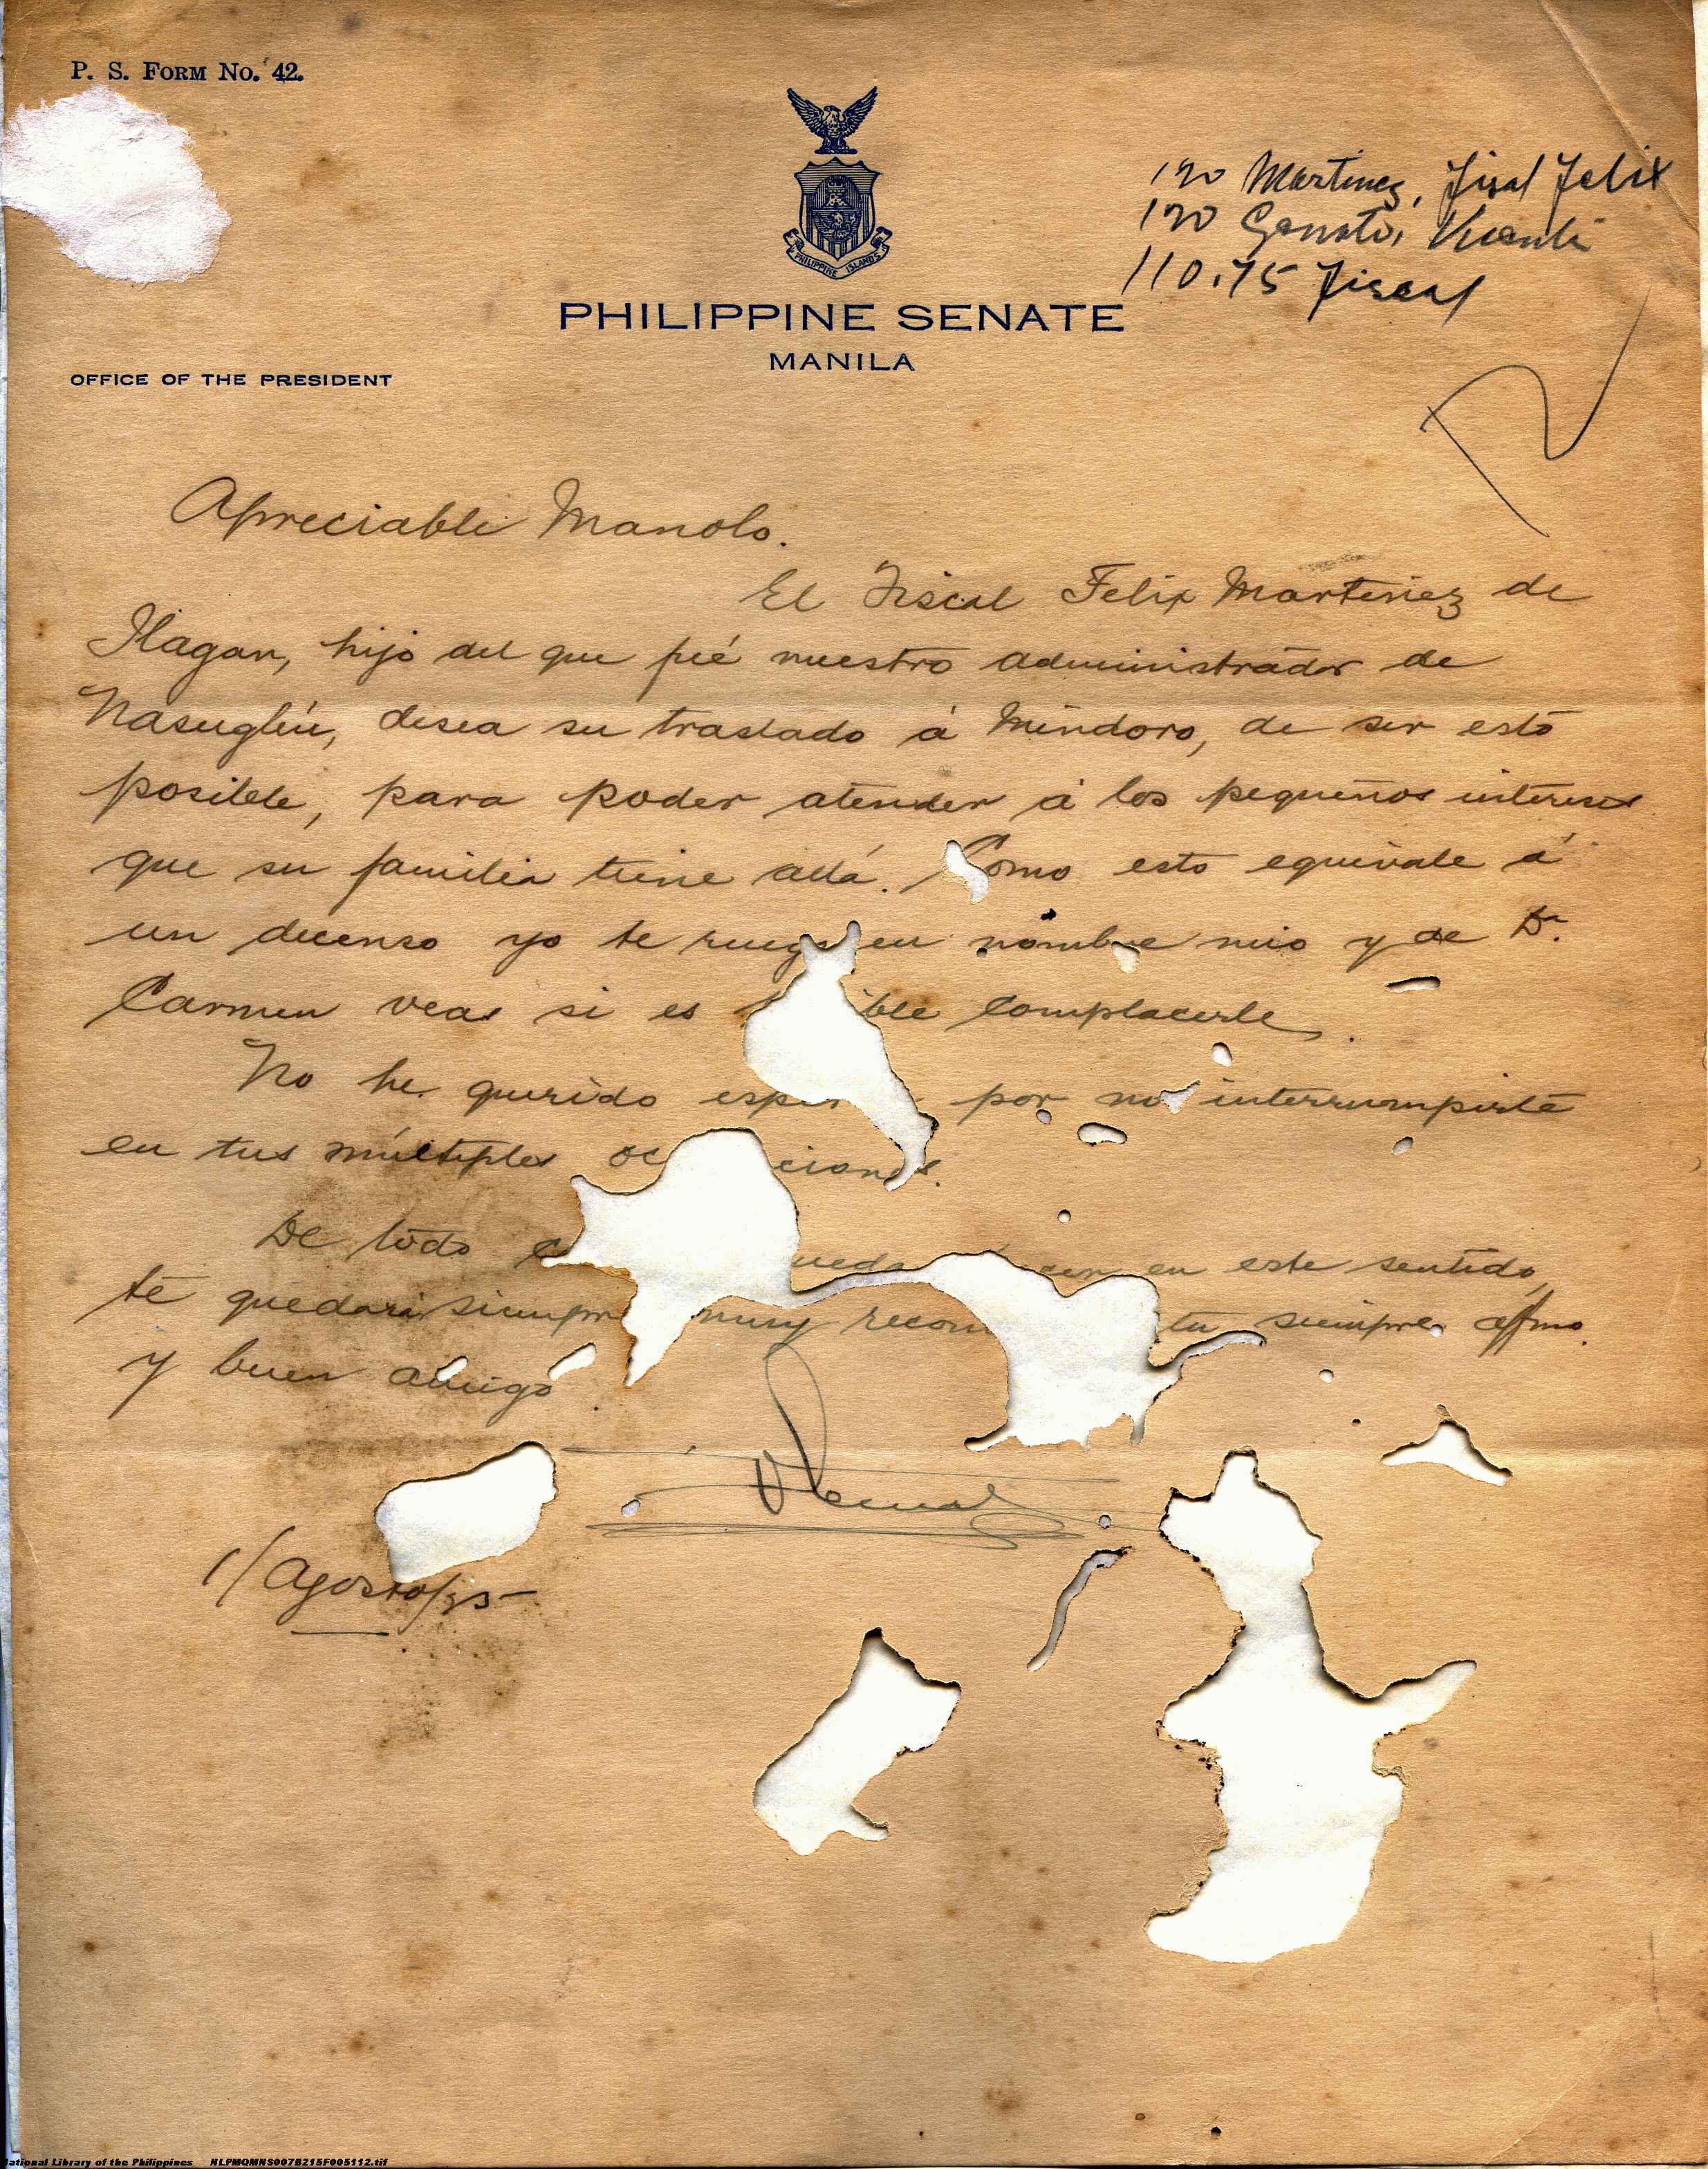 P. S. FORM No. 42.
120 Martinez, Fiscal Felix
120 Genato, Vicente
110.75 Fiscal
PHILIPPINE ISLANDS
PHILIPPINE SENATE
MANILA
OFFICE OF THE PRESIDENT
Apreciable Manolo.
El Fiscal Felix Martinez de
Ilagan, hijo del que fué nuestro administrador de
Nasugbú, desea su traslado á Mindoro, de ser esto
posible, para poder atender á los pequeños intereses
que su familia tiene allá. Como esto equivale á
un decenso yo te ruego en nombre mio y de Dª.
Carmen veas si es ible complacerle.
No he querido esper por no interrumpirte
en tus múltiples oc ciones.
De todo ueda cer en este sentido,
te quedará siempre muy recon tu siempre affmo.
y buen amigo
1/Agosto/35
National Library of the Philippines NLPMQMNS007B215F005112.tif